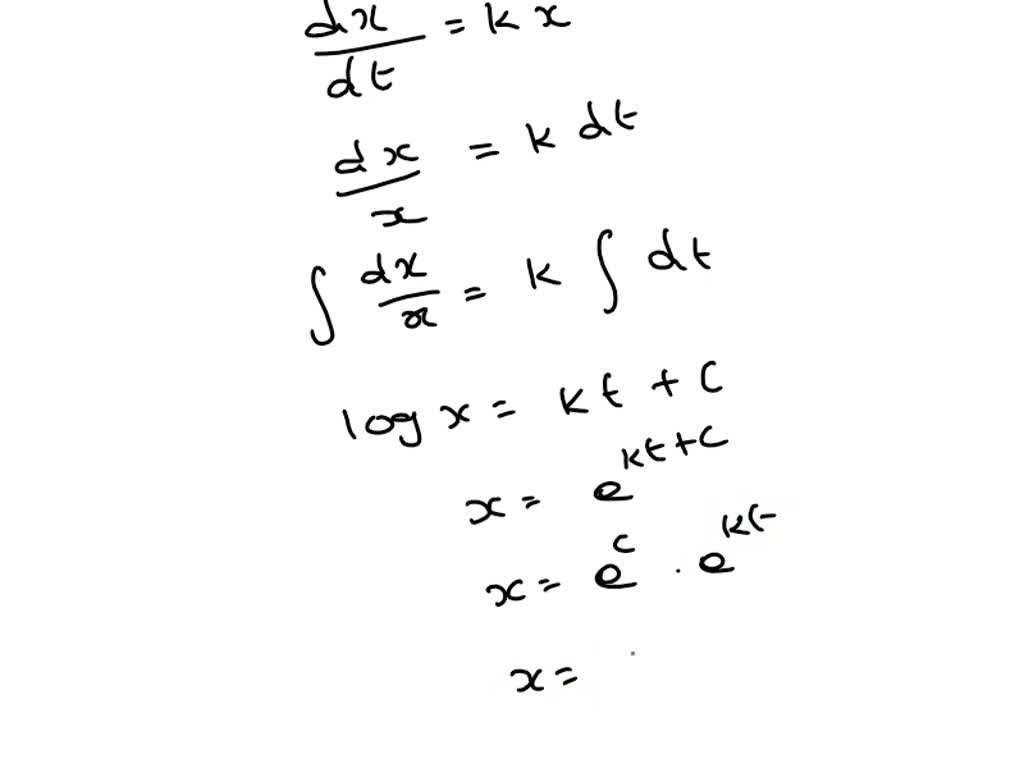 dx/dt = kx
dx/x = k dt
∫ dx/x = k ∫ dt
log x = kt + c
x = e^{kt+c}
x = e^c . e^{kt}
x =